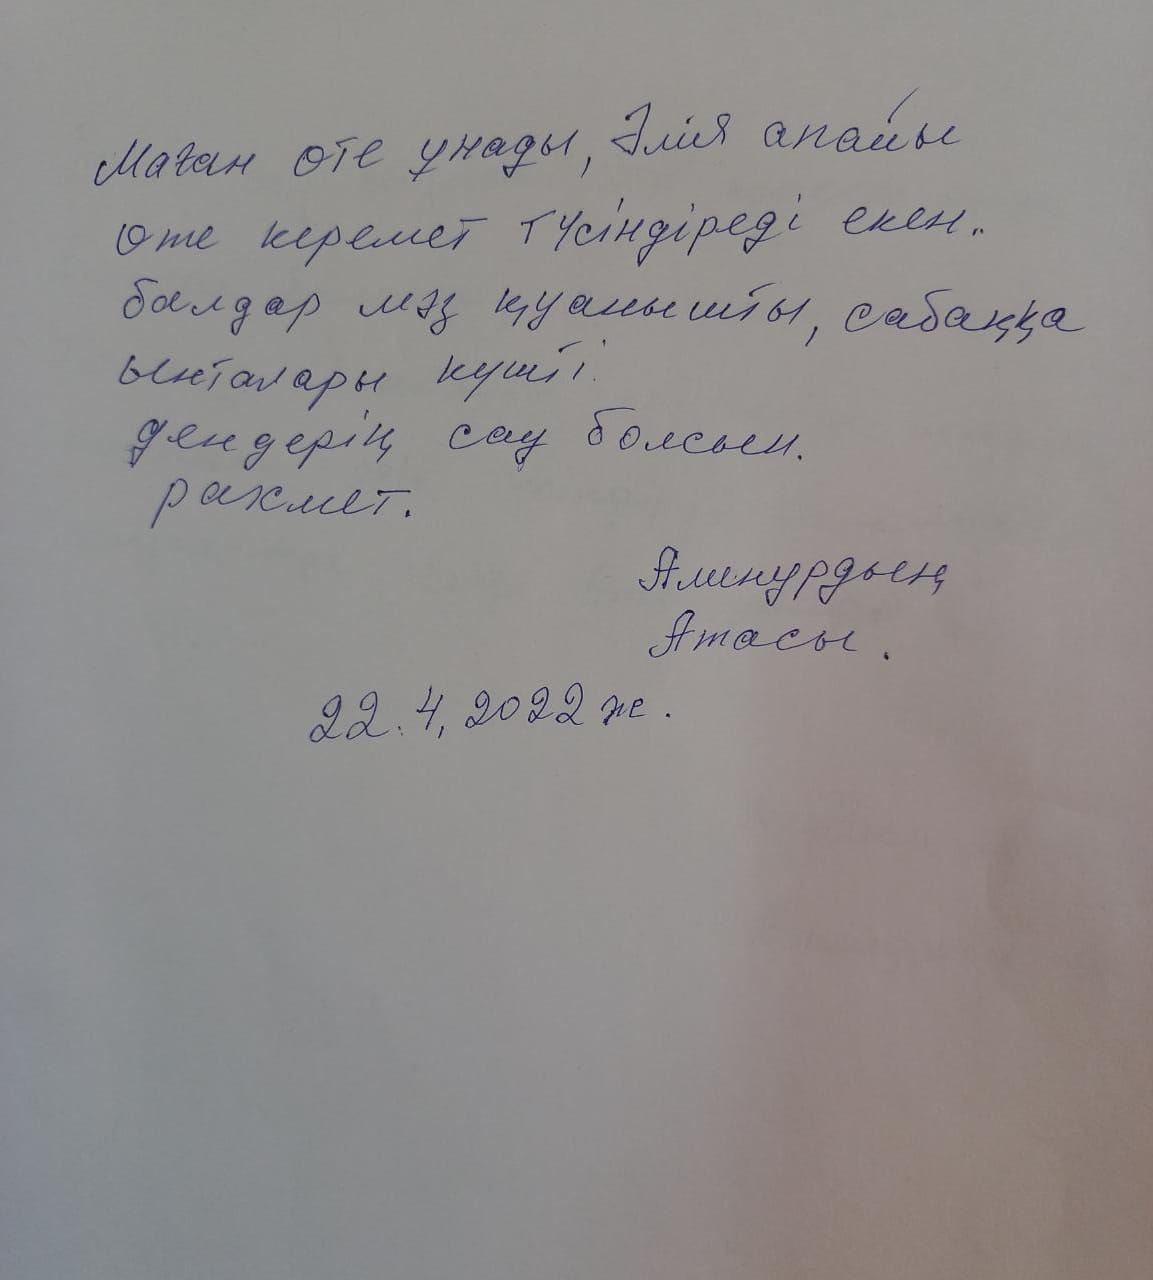 Маған өте ұнады, Әлия апайы
өте керемет түсіндіреді екен.
балдар мәз қуанышты, сабаққа
ынталары күшті.
дендерің сау болсын.
рахмет.
Аминурдың
Атасы.
22.4, 2022 ж.